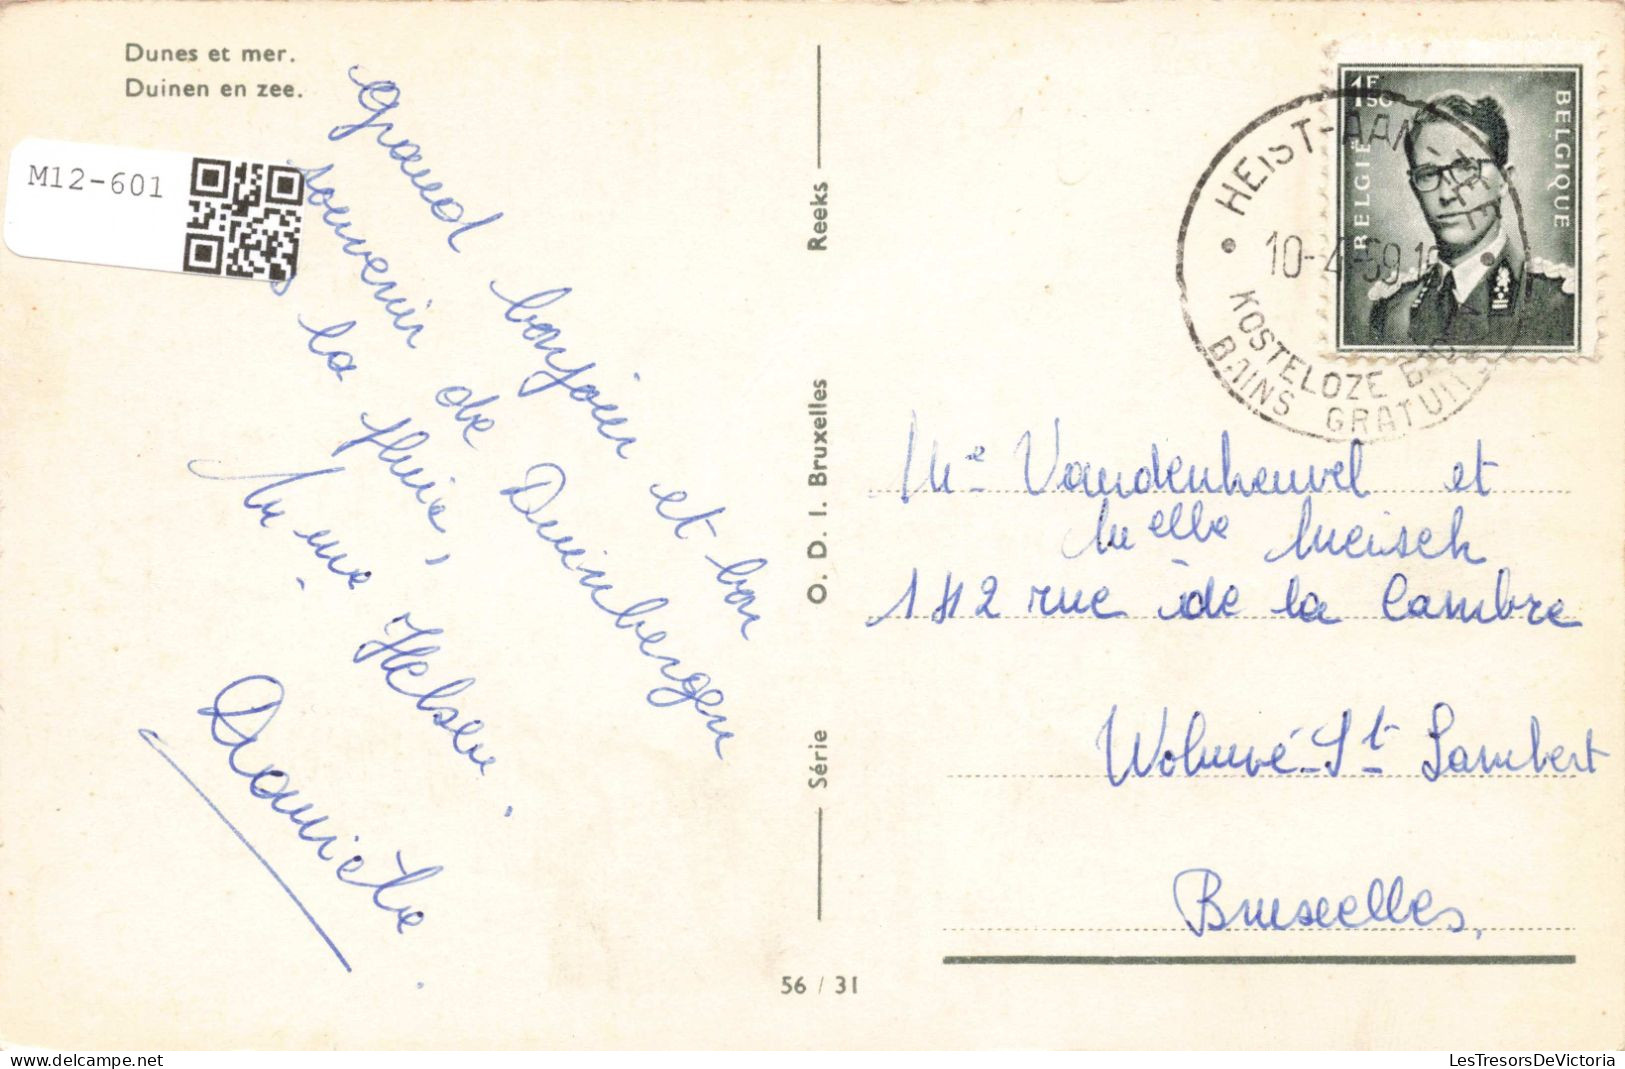 Dunes et mer.
Duinen en zee.
M12-601
Grand bonjour et bon
souvenir de Duinbergen
la pluie,
Mme Helsen.
Série
O. D. I. Bruxelles
Reeks
56 / 31
1F50
BELGIE
BELGIQUE
HEIST-AAN-ZEE
10-4-69
KOSTELOZE
BAINS GRATUITS
Me Vandenheuvel et
Melle Meisch
142 rue de la Cambre
Woluwé-St Lambert
Bruxelles,
LesTresorsDeVictoria